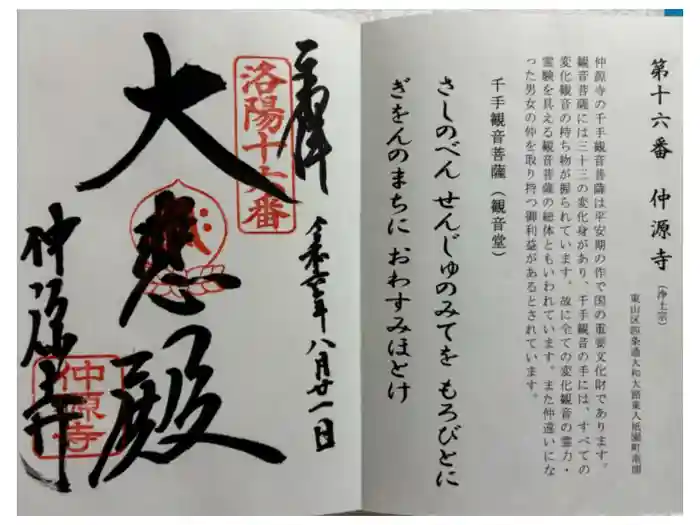 第十六番 仲源寺 (浄土宗)
東山区四条通大和大路東入祇園町南側
仲源寺の千手観音菩薩は平安期の作で国の重要文化財であります。
観音菩薩には三十三の変化身があり、千手観音の手には、すべての
変化観音の持ち物が握られています。故に全ての変化観音の霊力・
霊験を具える観音菩薩の総体ともいわれています。また仲違いにな
った男女の仲を取り持つ御利益があるとされています。
千手観音菩薩(観音堂)
さしのべん せんじゅのみてを もろびとに
ぎをんのまちに おわすみほとけ
奉拝
洛陽十六番
八月廿一日
大悲殿
仲源寺
仲源寺